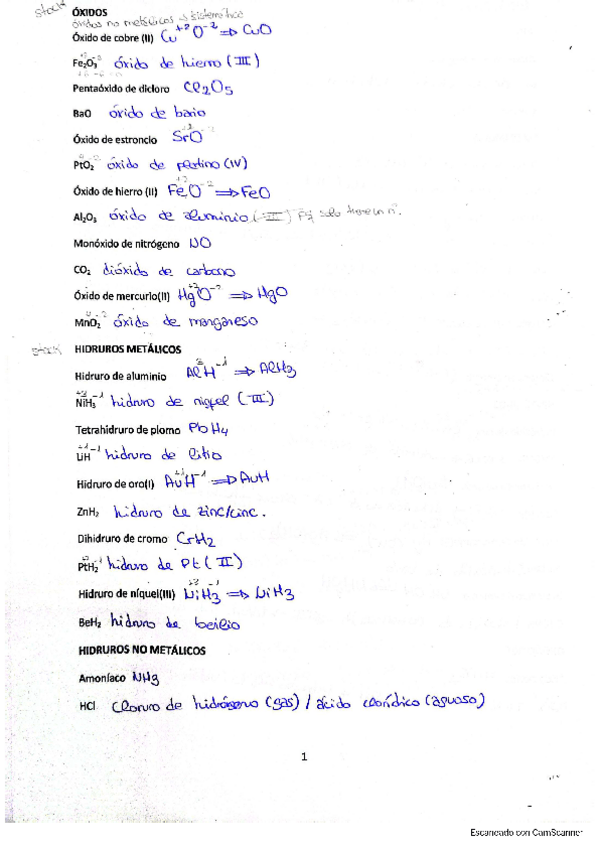 stock ÓXIDOS
óxidos no metálicos → sistemática
Óxido de cobre (II) Cu⁺² O⁻² ⇒ CuO
Fe₂O₃ óxido de hierro (III)
Pentaóxido de dicloro Cl₂O₅
BaO óxido de bario
Óxido de estroncio SrO
PtO₂ óxido de platino (IV)
Óxido de hierro (II) Fe⁺² O⁻² ⇒ FeO
Al₂O₃ óxido de aluminio (III) solo tiene un nº.
Monóxido de nitrógeno NO
CO₂ dióxido de carbono
Óxido de mercurio(II) Hg⁺² O⁻² ⇒ HgO
MnO₂ óxido de manganeso
stock HIDRUROS METÁLICOS
Hidruro de aluminio Al H⁻¹ ⇒ AlH₃
NiH₃ hidruro de niquel (III)
Tetrahidruro de plomo PbH₄
LiH hidruro de litio
Hidruro de oro(I) Au⁺¹ H⁻¹ ⇒ AuH
ZnH₂ hidruro de zinc/cinc.
Dihidruro de cromo CrH₂
PtH₂ hidruro de Pt (II)
Hidruro de níquel(III) NiH₃ ⇒ NiH₃
BeH₂ hidruro de berilio
HIDRUROS NO METÁLICOS
Amoníaco NH₃
HCl Cloruro de hidrógeno (gas) / ácido clorídrico (acuoso)
1
Escaneado con CamScanner